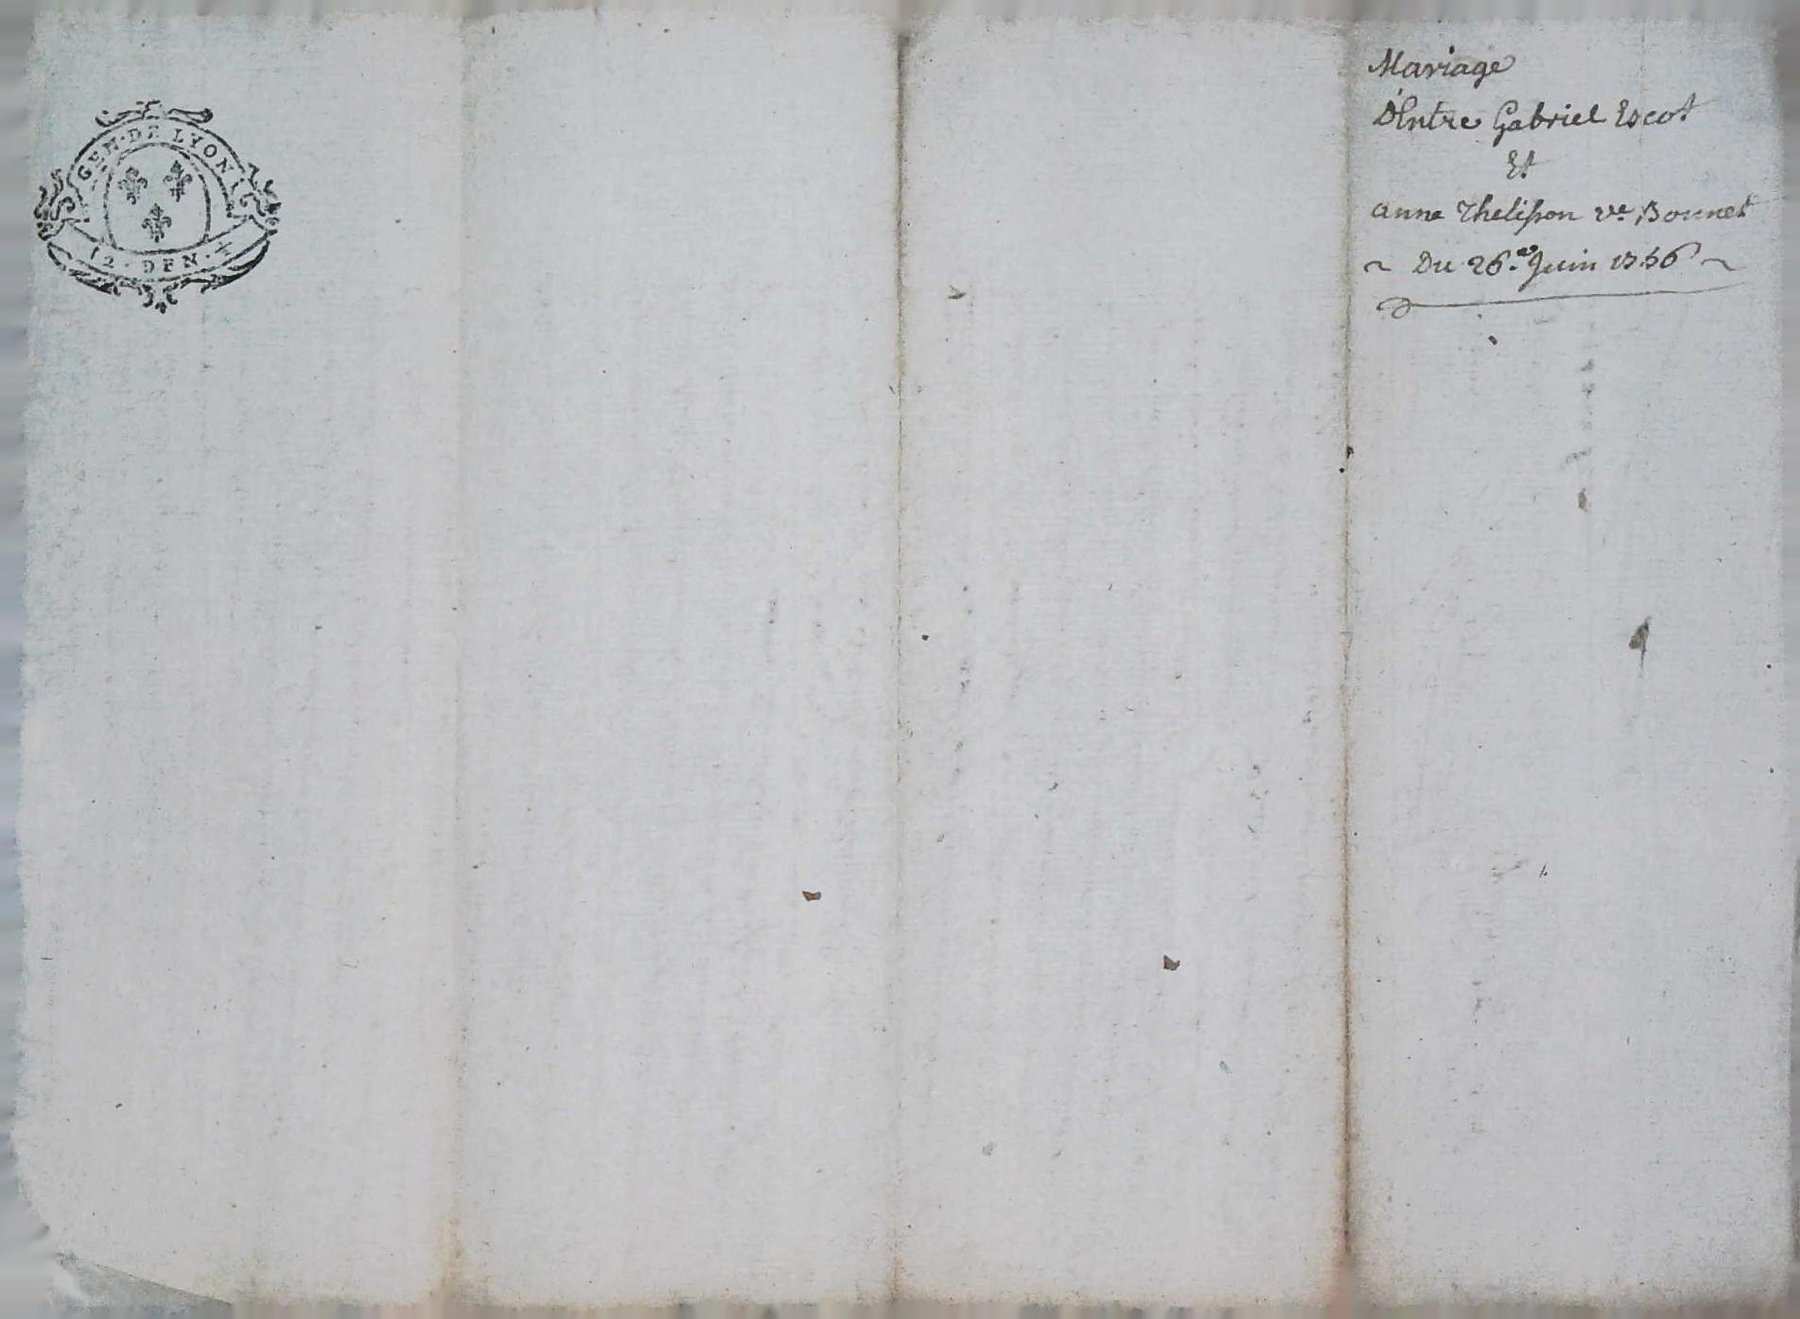 GEN·DE LYON
12·DEN·
Mariage
D'Entre Gabriel Escot
Et
anne Thelisson ve Bonnet
~ Du 26.e Juin 1756 ~